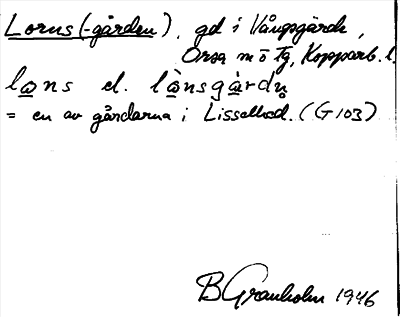 Lorns (-gården), gd i Vångsgärde,
Orsa m o fg, Kopparb. l.
lo̲ns el. lò̲nsgà̲rdn̥
= en av gårdarna i Lisselhed. (G 103)
B Granholm 1946